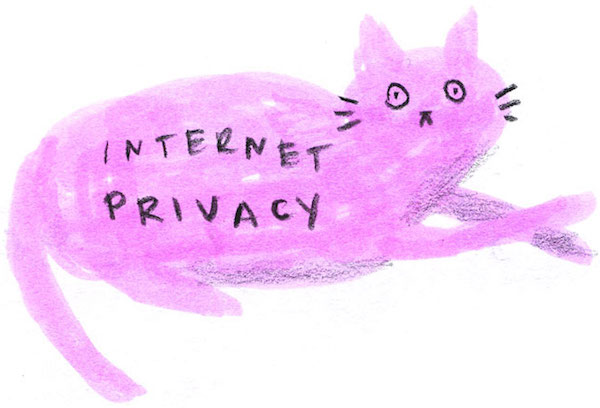 INTERNET
PRIVACY